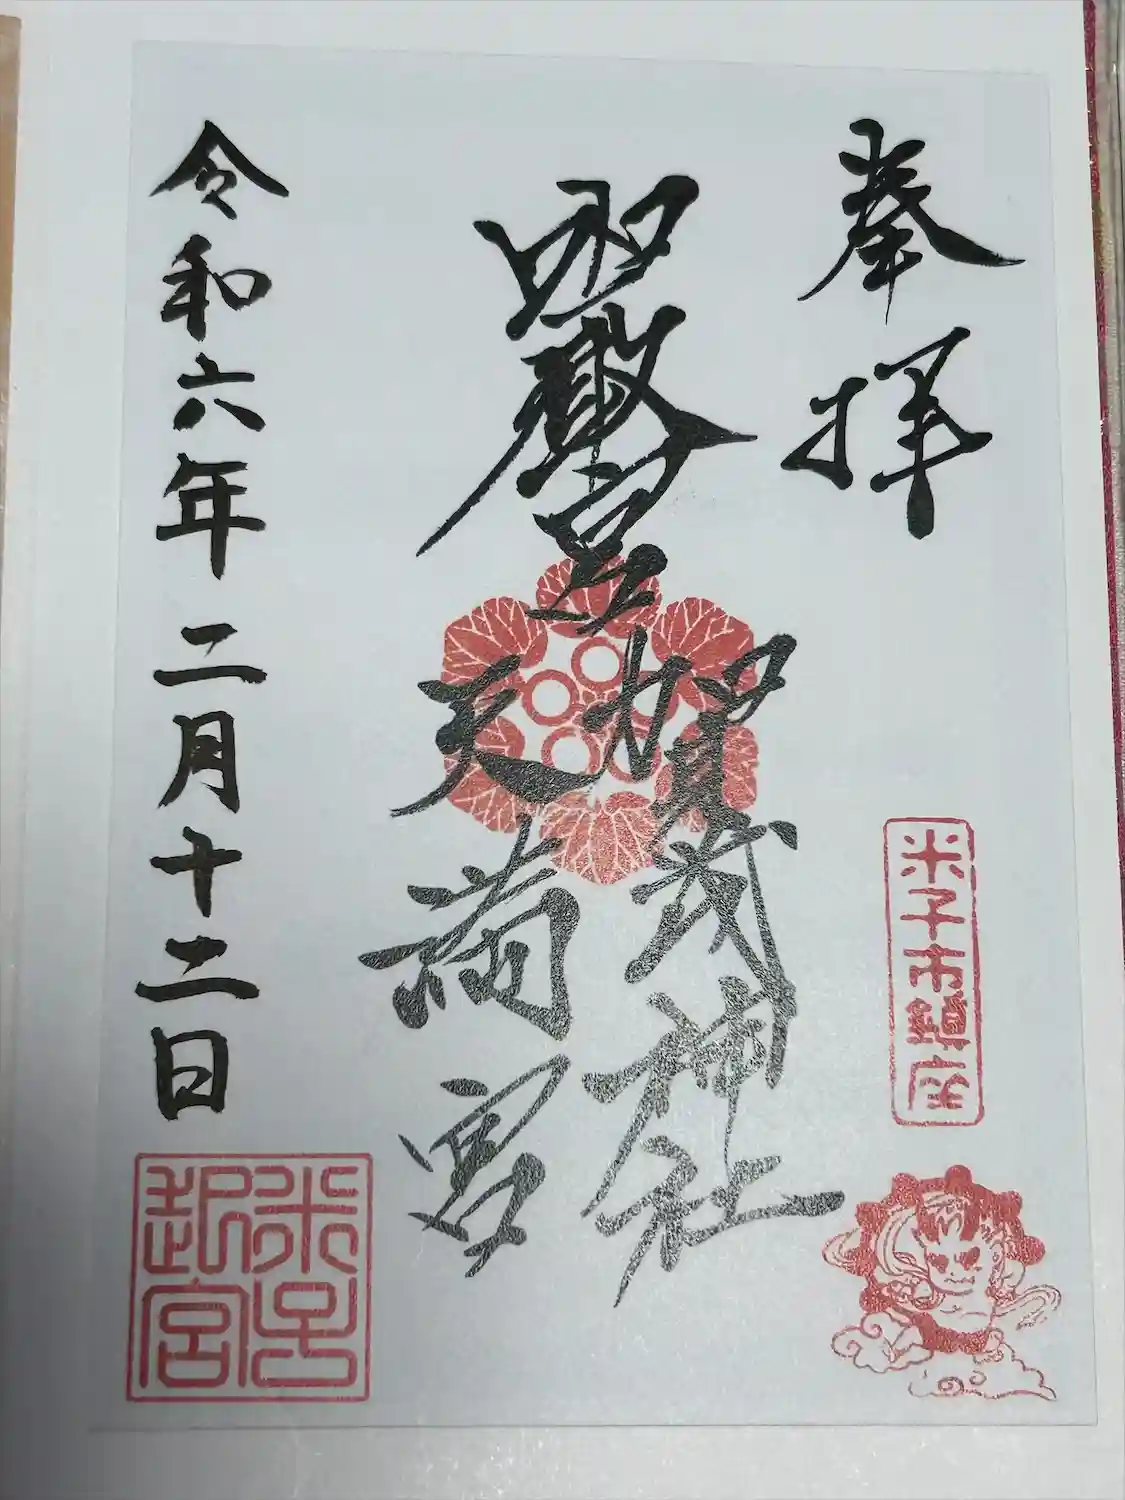 奉拝
米子市鎮座
賀茂神社
天満宮
令和六年二月十二日
米子
起宮